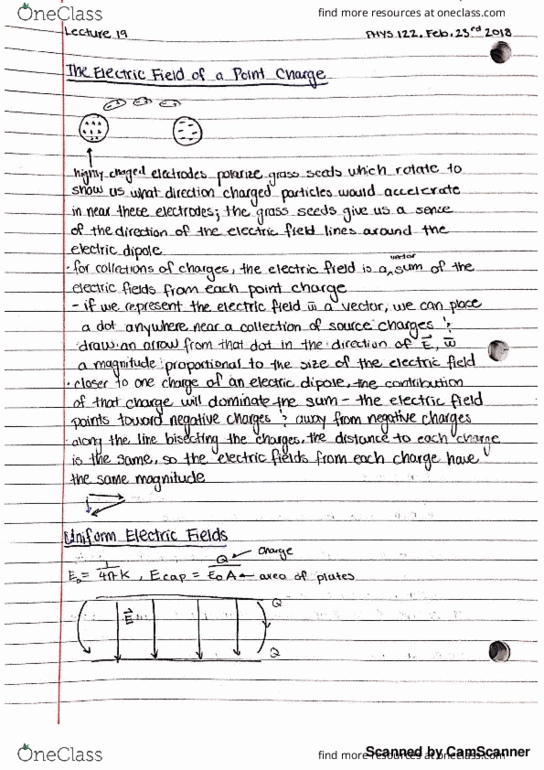 OneClass
find more resources at oneclass.com
Lecture 19
PHYS 122, Feb. 23rd 2018
The Electric Field of a Point Charge
highly charged electrodes polarize grass seeds which rotate to
show us what direction charged particles would accelerate
in near these electrodes; the grass seeds give us a sence
of the direction of the electric field lines around the
electric dipole
· for collections of charges, the electric field is a vector sum of the
electric fields from each point charge
- if we represent the electric field w a vector, we can place
a dot anywhere near a collection of source charges &
draw an arrow from that dot in the direction of E⃗, w
a magnitude proportional to the size of the electric field
· closer to one charge of an electric dipole, the contribution
of that charge will dominate the sum - the electric field
points toward negative charges & away from negative charges
· along the line bisecting the charges, the distance to each charge
is the same, so the electric fields from each charge have
the same magnitude
Uniform Electric Fields
E₀ = 1/4πK, Ecap = Q/E₀A ← area of plates
← charge
Q
E⃗
Q
OneClass
find more resources at oneclass.com
Scanned by CamScanner